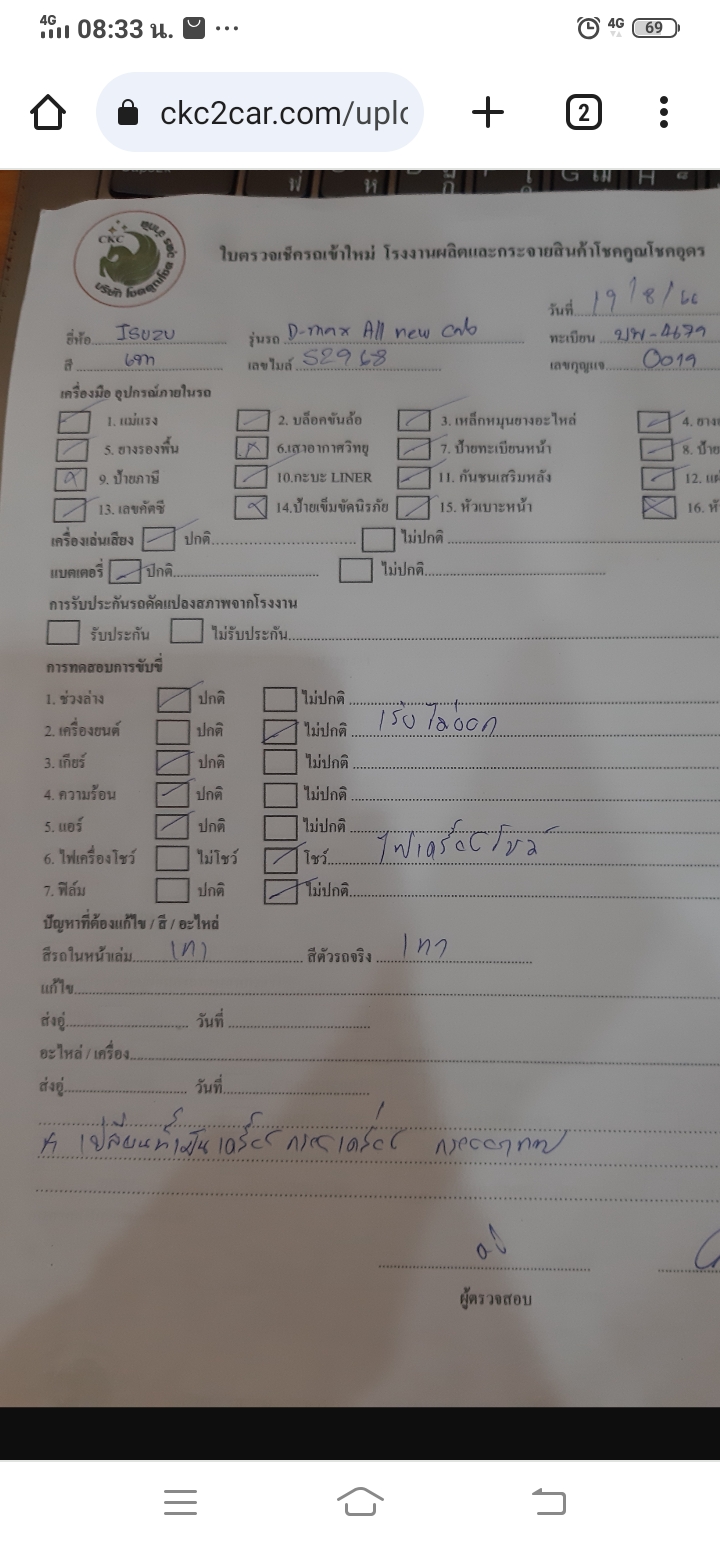 4G 08:33 น. 4G 69
ckc2car.com/uplo 2
CKC
ใบตรวจเช็ครถเข้าใหม่ โรงงานผลิตและกระจายสินค้าโชคคูณโชคอุดร
วันที่ 19/8/66
ยี่ห้อ ISUZU รุ่นรถ D-max All new cab ทะเบียน
สี เทา เลขไมล์ 52968 เลขกุญแจ 0019
เครื่องมือ อุปกรณ์ภายในรถ
1. แม่แรง 2. บล็อคขันล้อ 3. เหล็กหมุนยางอะไหล่ 4. ยาง
5. ยางรองพื้น 6.เสาอากาศวิทยุ 7. ป้ายทะเบียนหน้า 8. ป้าย
9. ป้ายภาษี 10.กะบะ LINER 11. กันชนเสริมหลัง 12.
13. เลขคัตซี 14.ป้ายเข็มขัดนิรภัย 15. หัวเบาะหน้า 16.
เครื่องเล่นเสียง ปกติ ไม่ปกติ
แบตเตอรี่ ปกติ ไม่ปกติ
การรับประกันรถดัดแปลงสภาพจากโรงงาน
รับประกัน ไม่รับประกัน
การทดสอบการขับขี่
1. ช่วงล่าง ปกติ ไม่ปกติ
2. เครื่องยนต์ ปกติ ไม่ปกติ เร่งไม่ออก
3. เกียร์ ปกติ ไม่ปกติ
4. ความร้อน ปกติ ไม่ปกติ
5. แอร์ ปกติ ไม่ปกติ
6. ไฟเครื่องโชว์ ไม่โชว์ โชว์ ไฟเครื่องโชว์
7. ฟิล์ม ปกติ ไม่ปกติ
ปัญหาที่ต้องแก้ไข / สี / อะไหล่
สีรถในหน้าเล่ม เทา สีตัวรถจริง เทา
แก้ไข
ส่งอู่ วันที่
อะไหล่ / เครื่อง
ส่งอู่ วันที่
เปลี่ยนน้ำมันเครื่อง กรองเครื่อง กรองอากาศ
ผู้ตรวจสอบ